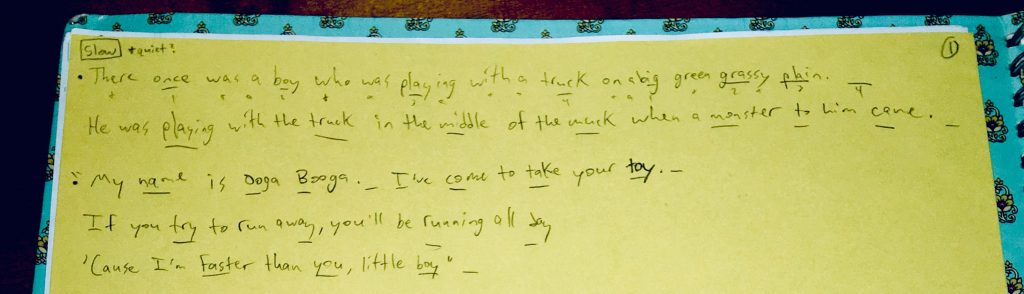 Slow *quiet? 1
• There once was a boy who was playing with a truck on a big green grassy plain.
1 2 3 4 1 2 3 4
He was playing with the truck in the middle of the muck when a monster to him came. _
• "My name is Ooga Booga. _ I've come to take your toy. _
If you try to run away, you'll be running all day
'Cause I'm faster than you, little boy" _